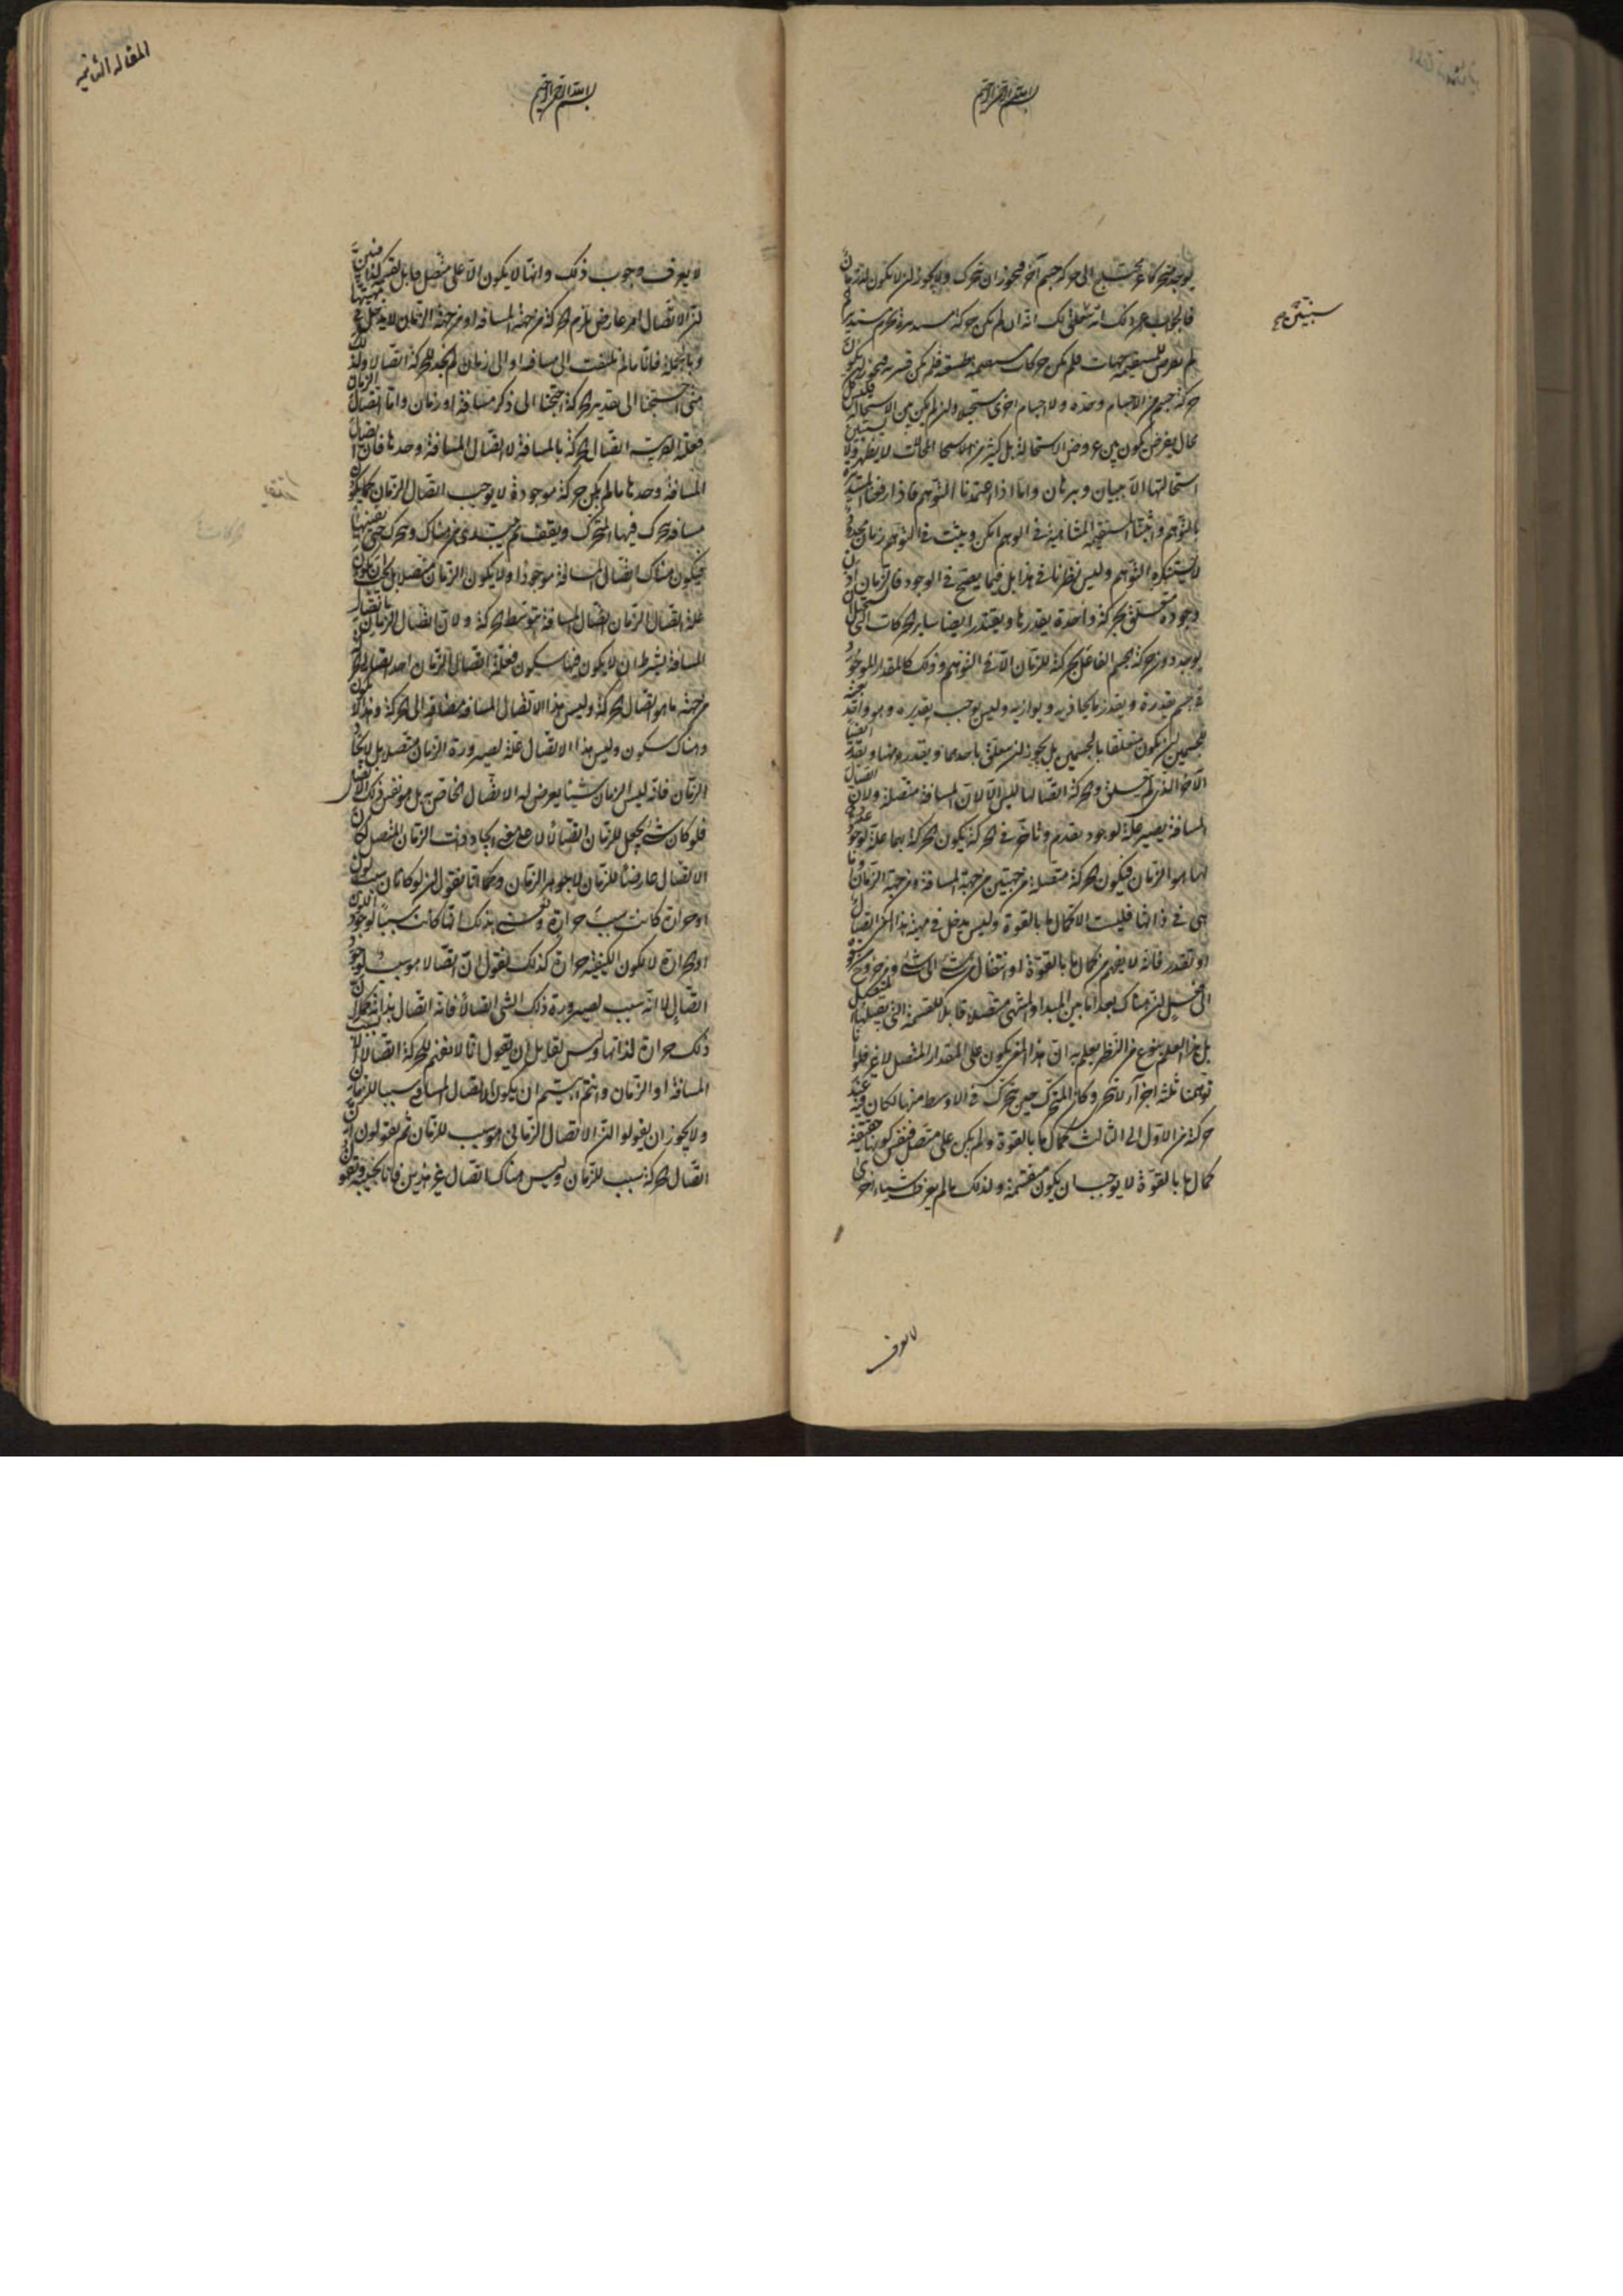 بسم الله الرحمن الرحيم
يوجد متحركا غير محتاج الى حركة جسم آخر فيجوز ان يتحرك ولا يجوز ان لا يكون له زمان
فالجواب عن ذلك انه سنبين لك انه ان لم تكن حركة مستديرة لجرم مستدير
سنبيّن صح
لم يعرض للمستقيمة جهات فلم تكن حركات مستقيمة طبيعية فلم تكن قسرية فيجوز ان يكون
حركة جسم من الاجسام وحده ولا اجسام اخرى مستحيلا وان لم يكن بين الاستحالة فليس كل
محال يعرض يكون بين عروض الاستحالة بل كثير من المحالات لا تظهر ولا يستبين
استحالتها الا ببيان وبرهان واما اذا اعتمدنا التوهم فاذا رفعنا المستديرة
بالتوهم واثبتنا المستقيمة المتناهية في الوهم امكن ويثبت في التوهم زمان محدود
لا يستنكره التوهم وليس نظرنا في هذا بل فيما يصح في الوجود فالزمان اذن
وجوده متعلق بحركة واحدة يقدرها ويقدر ايضا ساير الحركات التي يستحيل ان
يوجد دون حركة الجسم الفاعل بحركته للزمان الا في التوهم وذلك كالمقدار الموجود
في جسم يقدره ويقدر ما يحاذيه ويوازيه وليس يوجب تقديره وهو واحد بعينه
للجسمين ان يكون متعلقا بالجسمين بل يجوز ان يتعلق باحدهما ويقدره ويقدر ايضا
الآخر الذي لم يتعلق به والحركة اتصالها ليس الا لان المسافة متصلة ولان اتصال
المسافة يصير علة لوجود تقدم وتاخر في الحركة يكون الحركة بهما علة لوجود عدد
لها هو الزمان فيكون الحركة متصلة من جهتين من جهة المسافة ومن جهة الزمان واما
هي في ذاتها فليست الا كمال ما بالقوة وليس يدخل في مهية هذا المعنى اتصال
او تقدر فانه لا يفهم من كمال ما بالقوة او انتقال من شئ الى شئ او خروج من قوة
الى فعل ان هناك بعدا ما بين المبدأ والمنتهى متصلا قابلا للقسمة التي يقبلها المتصل
بل هذا يعلم بنوع من النظر يعلم به ان هذا المعنى يكون على المقدار المتصل لا غير فلو انا
توهمنا ثلثة اجزاء لا تتجزى وكان المتحرك حين يتحرك في الاوسط منها لكان فيه عند
حركته من الاول الى الثالث كمال ما بالقوة ولم يكن على متصل فنفس كونها حقيقة
كمال ما بالقوة لا يوجب ان يكون منقسمة ولذلك ما لم يعرف اشياء اخرى
لا يعرف
المقالة الثانية
بسم الله الرحمن الرحيم
لا يعرف وجوب ذلك وانها لا يكون الا على متصل قابل لقسمة كذا فبين
ان الاتصال امر عارض يلزم الحركة من جهة المسافة او من جهة الزمان لا يدخل في مهيتها
وبالجملة فانا ما لم نلتفت الى مسافة او الى زمان لم نجد للحركة اتصالا ولذلك
متى احتجنا الى تقدير الحركة احتجنا الى ذكر مسافة او زمان واما اتصال الزمان
فعلته القريبة اتصال الحركة بالمسافة لا اتصال المسافة وحدها فان اتصال
المسافة وحدها ما لم يكن حركة موجودة لا يوجب اتصال الزمان كما يكون
مسافة يتحرك فيها المتحرك ويقف ثم يبتدئ من هناك ويتحرك حتى يفنيها
فيكون هناك اتصال المسافة موجودا ولا يكون الزمان متصلا بل يجب ان يكون
علة اتصال الزمان اتصال المسافة بتوسط الحركة ولان اتصال الزمان باتصال
المسافة بشرط ان لا يكون فيها سكون فعلة اتصال الزمان احد اتصالي الحركة
من جهة ما هو اتصال الحركة وليس هذا الا اتصال المسافة مضافا الى الحركة وهذا لا يكون
وهناك سكون وليس هذا الاتصال علة لصيرورة الزمان متصلا بل لايجاد
الزمان فانه ليس الزمان شيئا يعرض له الاتصال الخاص به بل هو نفس ذلك الاتصال
فلو كان شئ يجعل للزمان اتصالا لا على معنى ايجاد ذات الزمان المتصل لكان
الاتصال عارضا للزمان لا جوهر الزمان وكما انا نقول ان لونا كان سبب لون
او حرارة كانت سبب حرارة ونعني بذلك انها كانت سببا لوجود اللون
او الحرارة لا لكون الكيفية حرارة كذلك نقول ان اتصالا هو سبب لوجود
اتصال لا انه سبب لصيرورة ذلك الشئ اتصالا فانه اتصال بذاته كما ان
ذلك حرارة لذاتها وليس لقايل ان يقول انا لا نفهم للحركة اتصالا الا بسبب
المسافة او الزمان وانتم ابيتم ان يكون الاتصال المسافي سببا للزمان
ولا يجوز ان يقولوا ان الاتصال الزماني هو سبب للزمان ثم يقولون ان
اتصال الحركة سبب للزمان وليس هناك اتصال غير هذين فانا نجيب ونقول